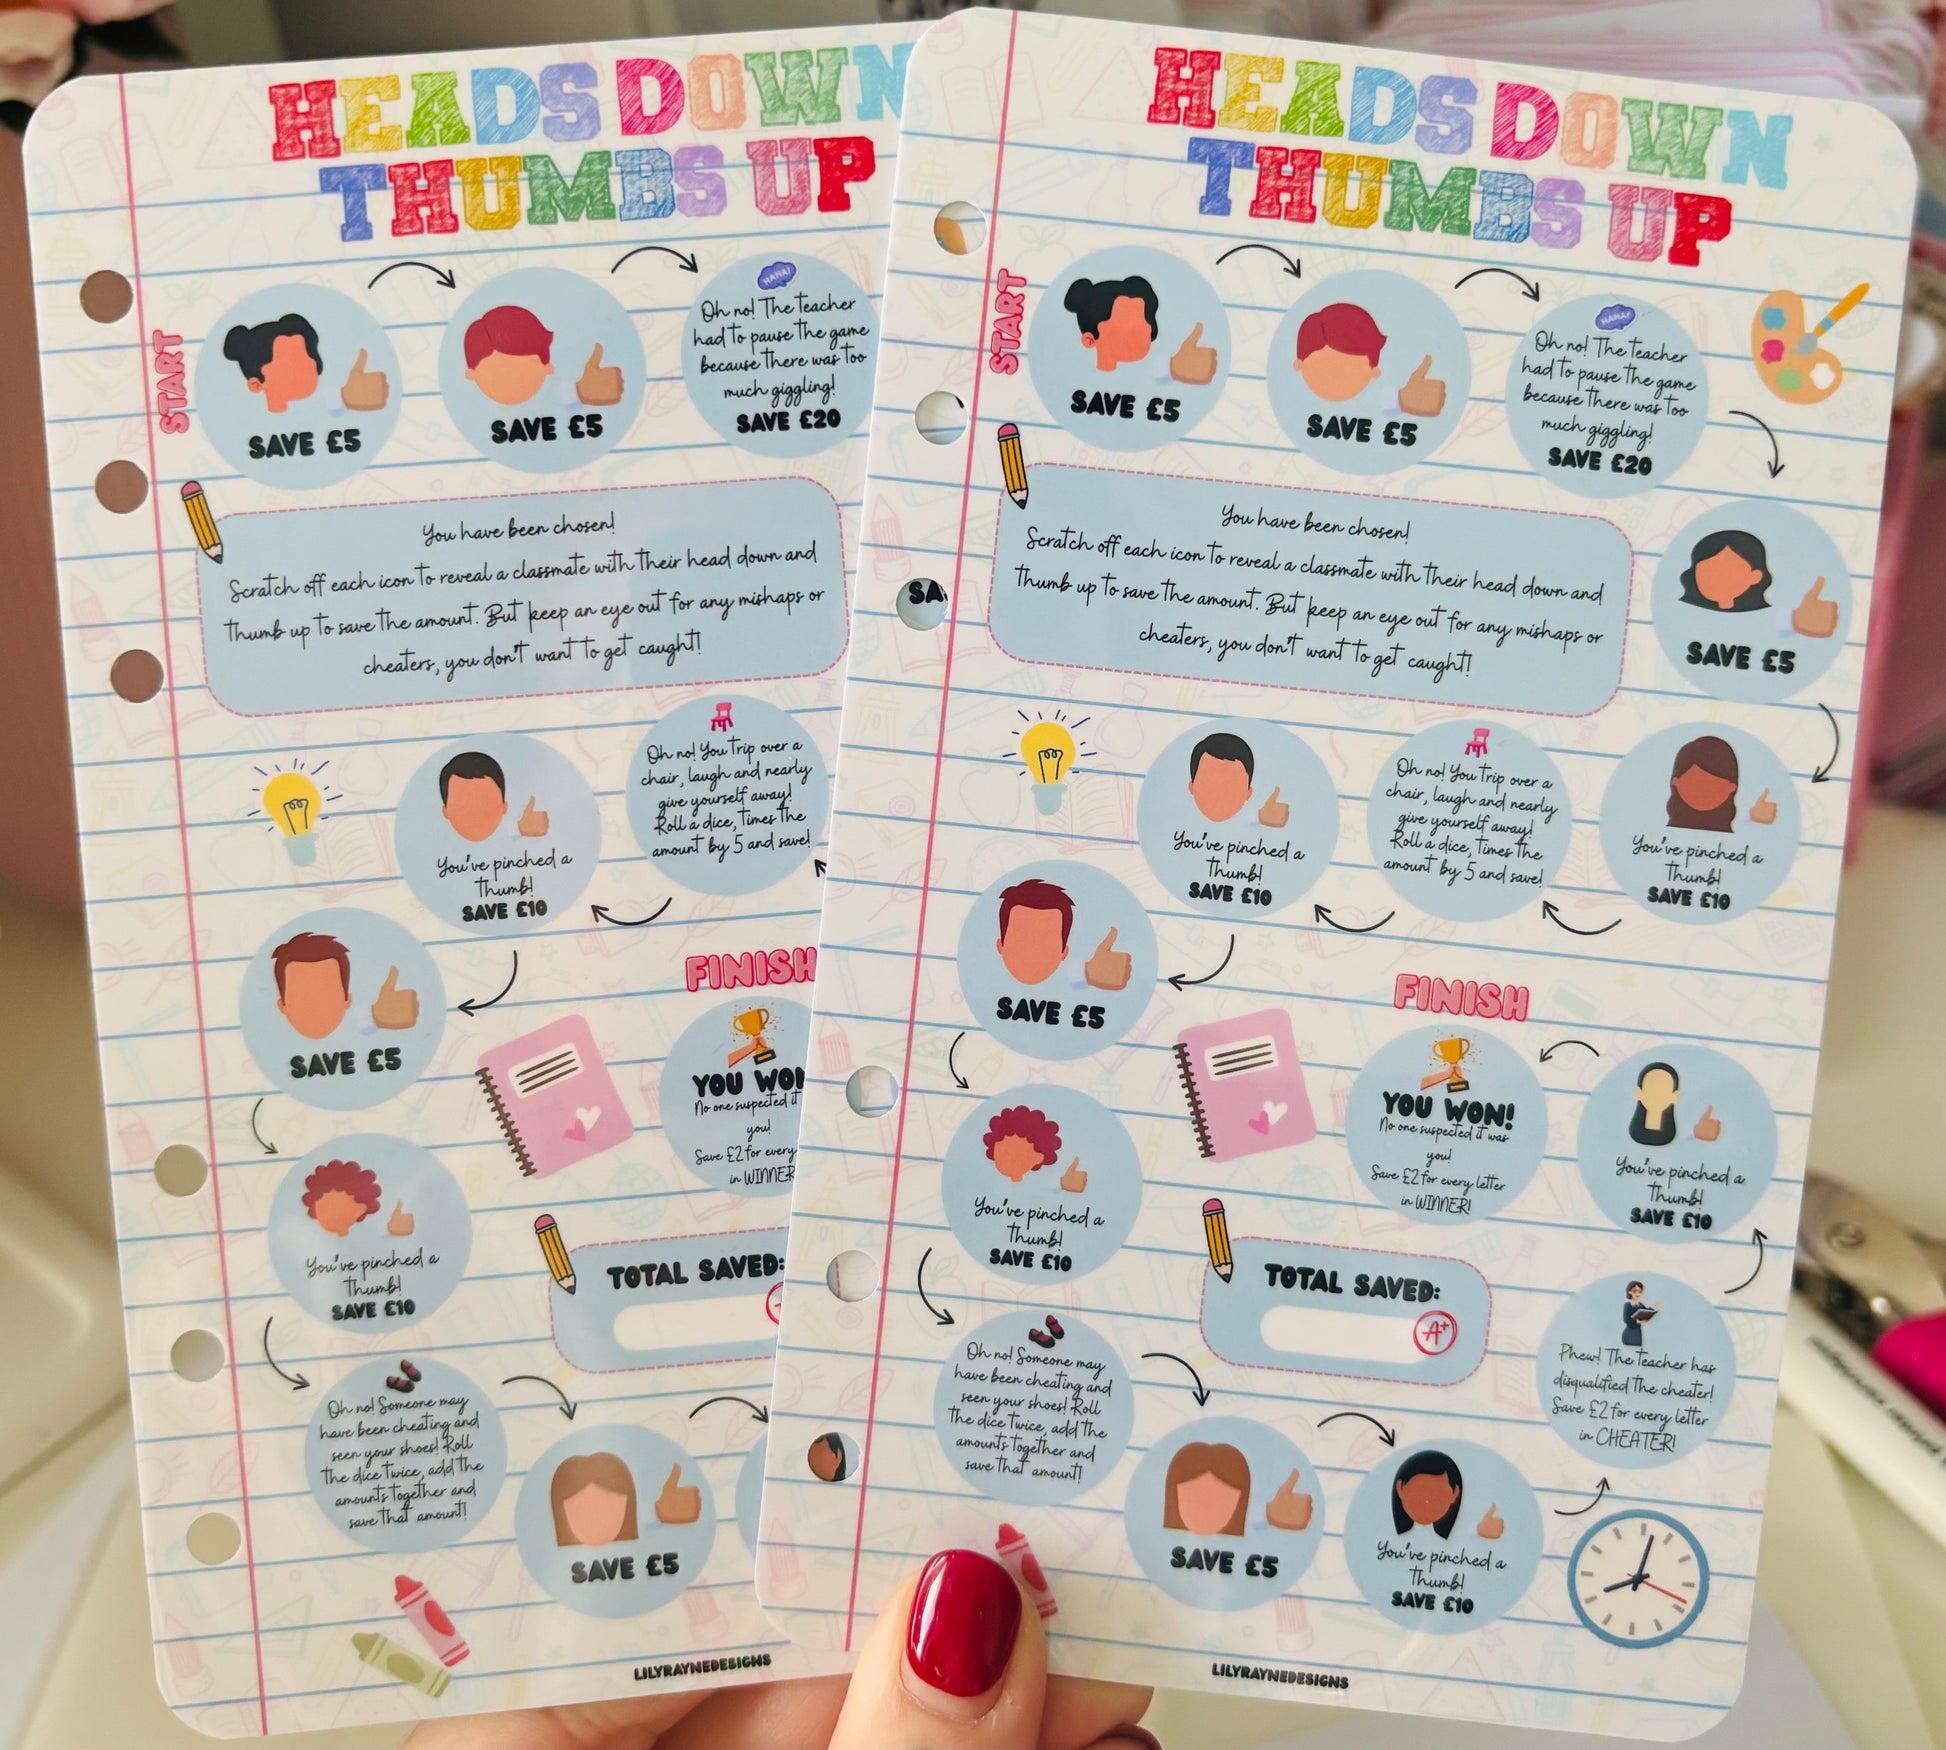 HEADS DOWN
THUMBS UP
START
SAVE £5
SAVE £5
HAHA!
Oh no! The teacher
had to pause the game
because there was too
much giggling!
SAVE £20
You have been chosen!
Scratch off each icon to reveal a classmate with their head down and
thumb up to save the amount. But keep an eye out for any mishaps or
cheaters, you don't want to get caught!
Oh no! You trip over a
chair, laugh and nearly
give yourself away!
Roll a dice, times the
amount by 5 and save!
You've pinched a
thumb!
SAVE £10
SAVE £5
FINISH
YOU WON
No one suspected it
you!
Save £2 for every
in WINNER
You've pinched a
thumb!
SAVE £10
TOTAL SAVED:
Oh no! Someone may
have been cheating and
seen your shoes! Roll
the dice twice, add the
amounts together and
save that amount!
SAVE £5
LILYRAYNEDESIGNS
HEADS DOWN
THUMBS UP
START
SAVE £5
SAVE £5
HAHA!
Oh no! The teacher
had to pause the game
because there was too
much giggling!
SAVE £20
SA
You have been chosen!
Scratch off each icon to reveal a classmate with their head down and
thumb up to save the amount. But keep an eye out for any mishaps or
cheaters, you don't want to get caught!
SAVE £5
You've pinched a
thumb!
SAVE £10
Oh no! You trip over a
chair, laugh and nearly
give yourself away!
Roll a dice, times the
amount by 5 and save!
You've pinched a
thumb!
SAVE £10
SAVE £5
FINISH
YOU WON!
No one suspected it was
you!
Save £2 for every letter
in WINNER!
You've pinched a
thumb!
SAVE £10
You've pinched a
thumb!
SAVE £10
TOTAL SAVED:
A+
Phew! The teacher has
disqualified the cheater!
Save £2 for every letter
in CHEATER!
Oh no! Someone may
have been cheating and
seen your shoes! Roll
the dice twice, add the
amounts together and
save that amount!
SAVE £5
You've pinched a
thumb!
SAVE £10
LILYRAYNEDESIGNS